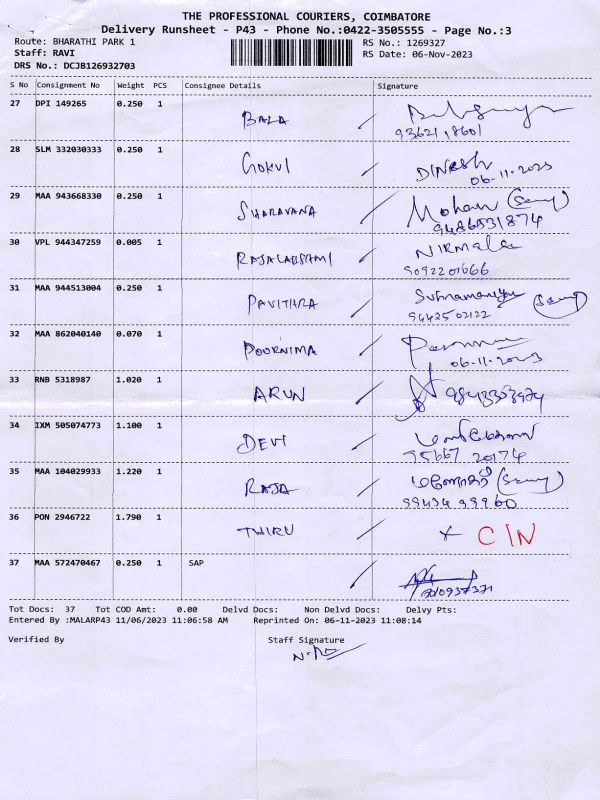 THE PROFESSIONAL COURIERS, COIMBATORE
Delivery Runsheet - P43 - Phone No.:0422-3505555 - Page No.:3
Route: BHARATHI PARK 1 RS No.: 1269327
Staff: RAVI RS Date: 06-Nov-2023
DRS No.: DCJB126932703
S No Consignment No Weight PCS Consignee Details Signature
27 DPI 149265 0.250 1 BALA
28 SLM 332030333 0.250 1 GOKUL DINESH
06-11-2023
29 MAA 943668330 0.250 1 SHARAVANA Mohan
9486531874
30 VPL 944347259 0.005 1 NIRMALA
9092201666
31 MAA 944513004 0.250 1 PAVITHRA
9442502122
32 MAA 862040140 0.070 1 POORNIMA
06-11-2023
33 RNB 5318987 1.020 1 ARUN
34 IXM 505074773 1.100 1 DEVI
75667 20174
35 MAA 104029933 1.220 1 RAJA
99434 99960
36 PON 2946722 1.790 1 THIRU
37 MAA 572470467 0.250 1 SAP
Tot Docs: 37 Tot COD Amt: 0.00 Delvd Docs: Non Delvd Docs: Delvy Pts:
Entered By :MALARP43 11/06/2023 11:06:58 AM Reprinted On: 06-11-2023 11:08:14
Verified By Staff Signature